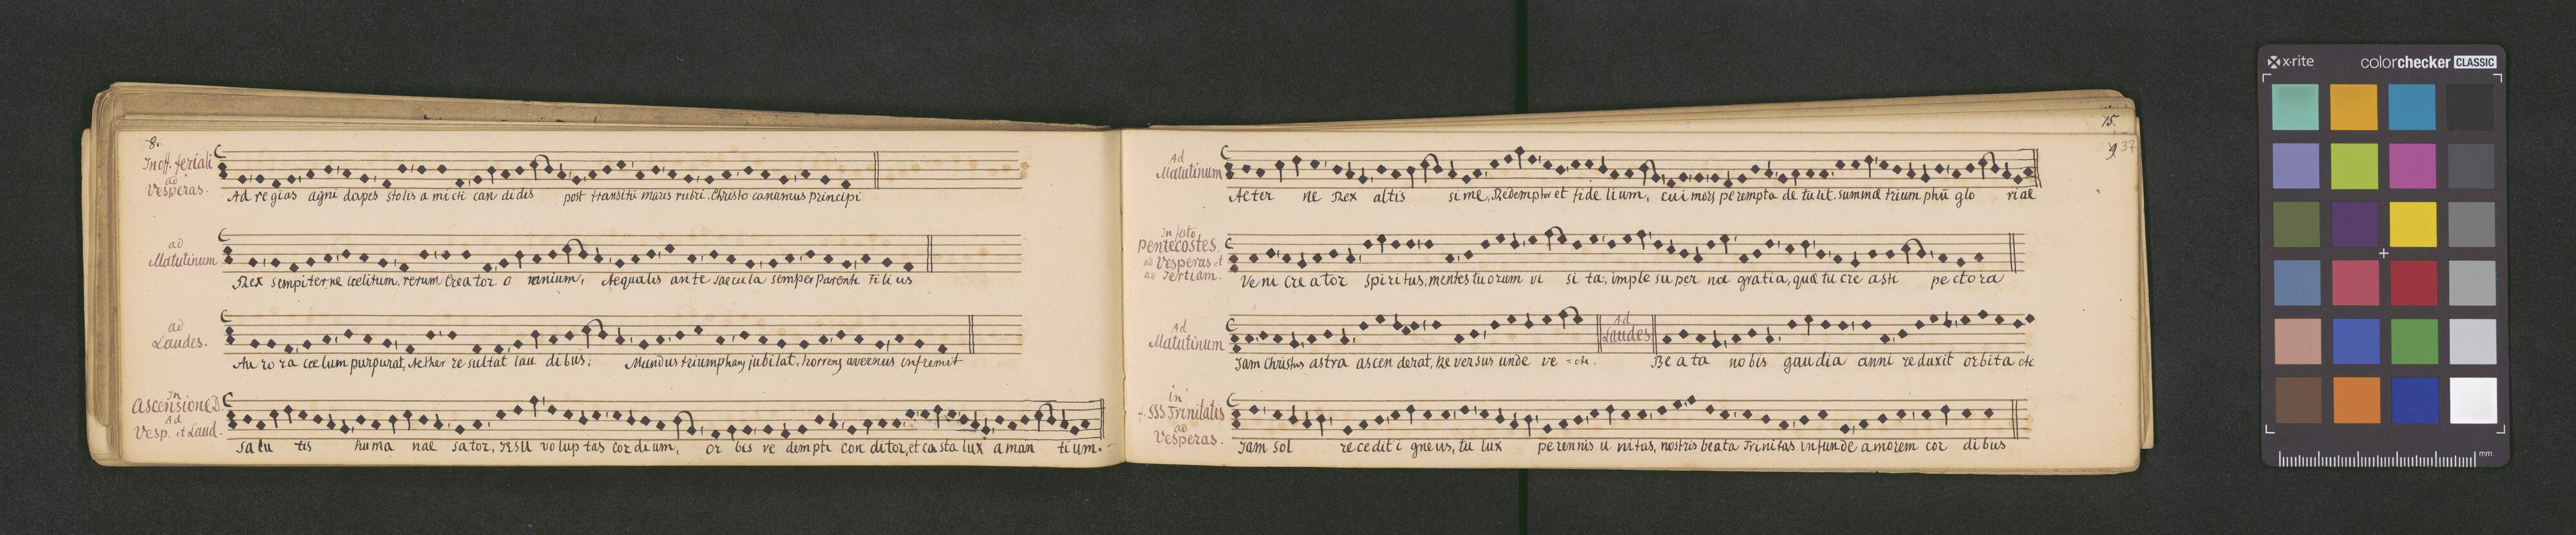 8.
In off. feriali
ad
Vesperas.
Ad re gias agni dapes stolis a mi cti can di dis post transitū maris rubri. Christo canamus principi
ad
Matutinum
Rex sempiterne coelitum. rerum Crea tor o mnium, Aequalis an te saecu la semper Parenti Fi li us
ad
Laudes.
Au ro ra coe lum purpurat, Aether re sultat lau di bus: Mundus triumphans jubilat, horrens avernus infremit
In
Ascensione D.
Ad
Vesp. et Laud.
Sa lu tis huma nae sa tor, JESU vo lup tas cor di um, or bis re dempti con di tor, et ca sta lux a man ti um.
15.
9 37
Ad
Matutinum
Ae ter ne Rex altis si me, Redemptor et fi de li um, cui mors pe rempta de tu lit. summae trium phū glo riae
In festo
Pentecostes.
ad Vesperas et
ad Tertiam.
Ve ni Cre a tor Spi ri tus, mentes tu orum vi si ta: imple su per na gratia, quae tu cre asti pe cto ra
Ad
Matutinum
Jam Christus astra ascen derat, Re versus unde ve = etc.
Ad
Laudes
Be a ta no bis gau dia anni re duxit or bi ta etc
in
SSS Trinitatis
ad
Vesperas.
Jam sol re ce dit i gne us, tu lux pe rennis u nitas, nostris beata Trinitas infunde a morem cor di bus
x-rite
colorchecker CLASSIC
mm